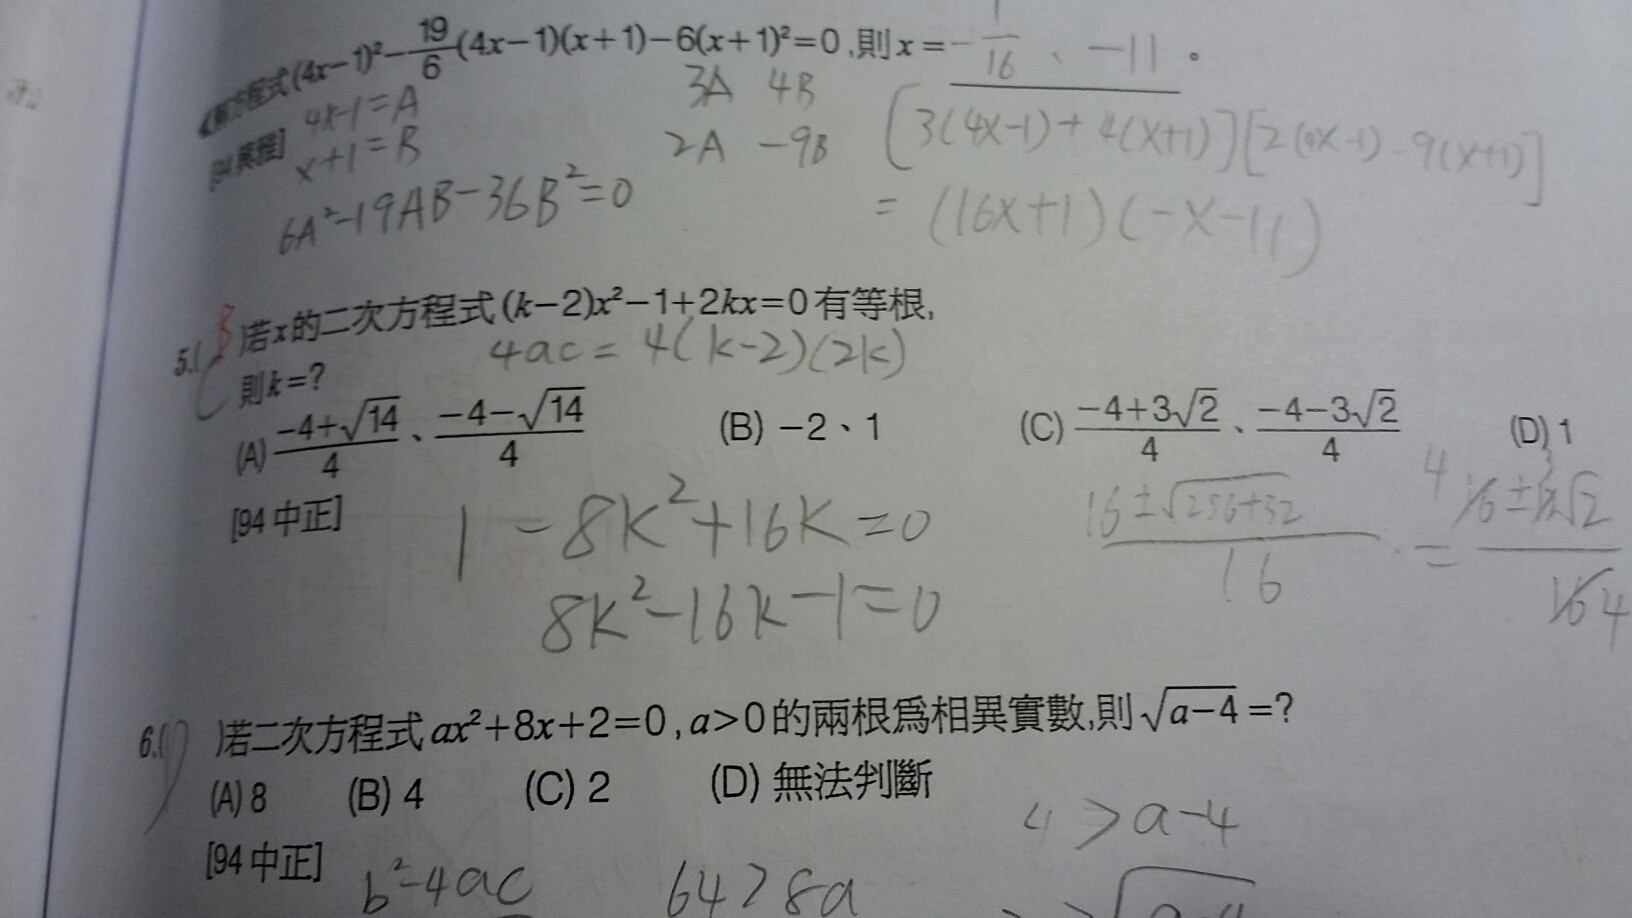 解方程式(4x−1)²−19/6(4x−1)(x+1)−6(x+1)²=0,則x=−1/16、−11。
4x-1=A
x+1=B
3A 4B
2A -9B
[3(4x-1)+4(x+1)][2(4x-1)-9(x+1)]
=(16x+1)(-x-11)
6A²-19AB-36B²=0
5.( B )若x的二次方程式(k−2)x²−1+2kx=0有等根,
則k=?
4ac=4(k-2)(2k)
(A) −4+√14/4、−4−√14/4 (B) −2、1 (C) −4+3√2/4、−4−3√2/4 (D) 1
[94中正]
1-8k²+16k=0
8k²-16k-1=0
16±√256+32/16
6.( )若二次方程式ax²+8x+2=0,a>0的兩根為相異實數,則√a−4=?
(A) 8 (B) 4 (C) 2 (D) 無法判斷
[94中正]
b²-4ac
64>8a
4>a-4